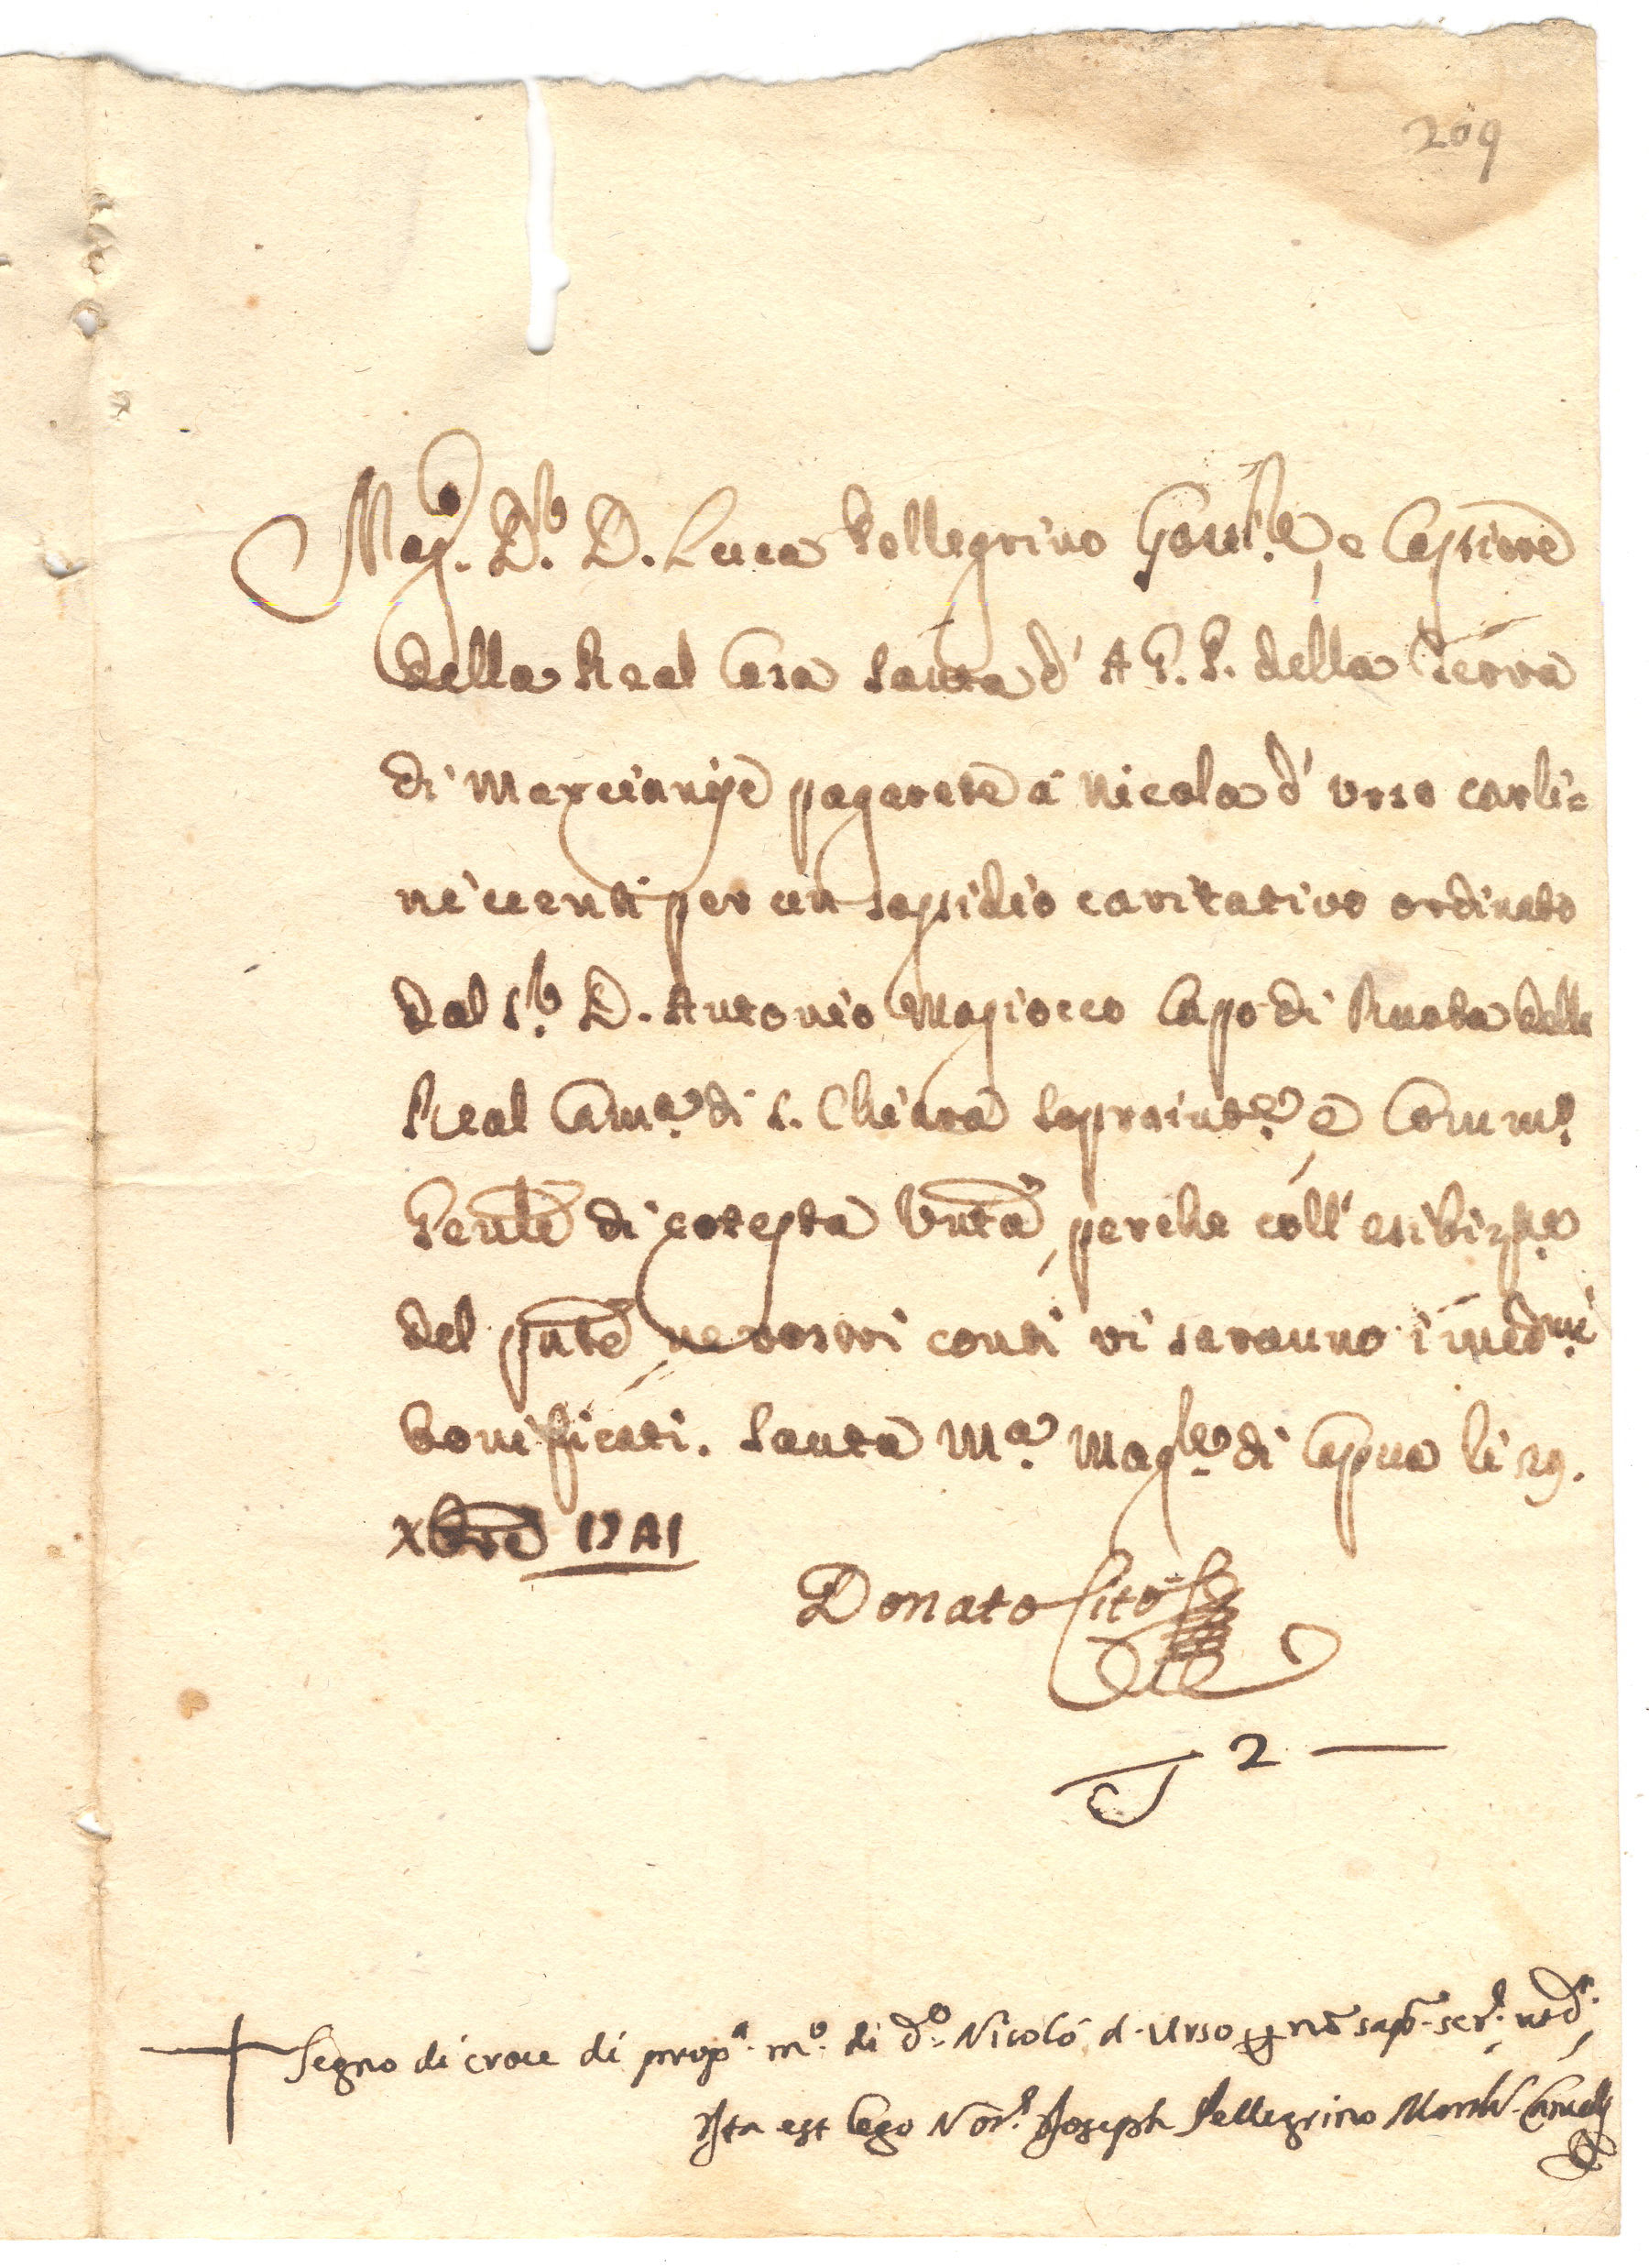 209
Mag.co D.r D. Luca Pellegrino Gov.re, e Cassiere
della Real Casa Santa d' A. G. P. della Terra
di Marcianise pagarete à Nicola d' Urso carli=
ni venti per un sussidio caritativo ordinato
dal S.r D. Antonio Magiocco Capo di Ruota della
Real Cam.a di S. Chiara sopraint.e, e Comm.o
di cotesta Unta, perche coll' esibiz.ne
del pnte ne vostri conti vi saranno i med.mi
bonificati. Santa M.a Mag.re di Capua li 29.
Xbre 1741
Donato Cito
2 —
Segno di croce di prop.a m.o di d.o Nicolò d' Urso per nō sap.r scr.e ut d.r
Ita est Ego Not.s Joseph Pellegrino